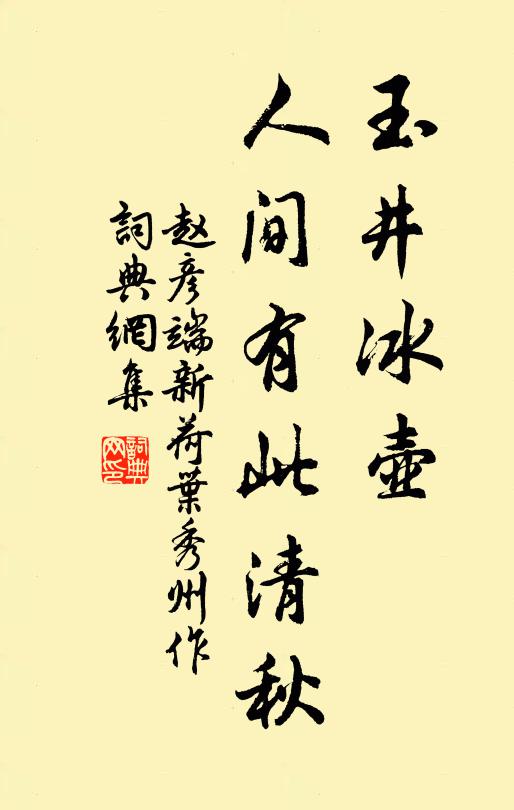 玉井冰壺
人间有此清秋
赵彥端新荷葉秀州作
詞典網集
詞典网印